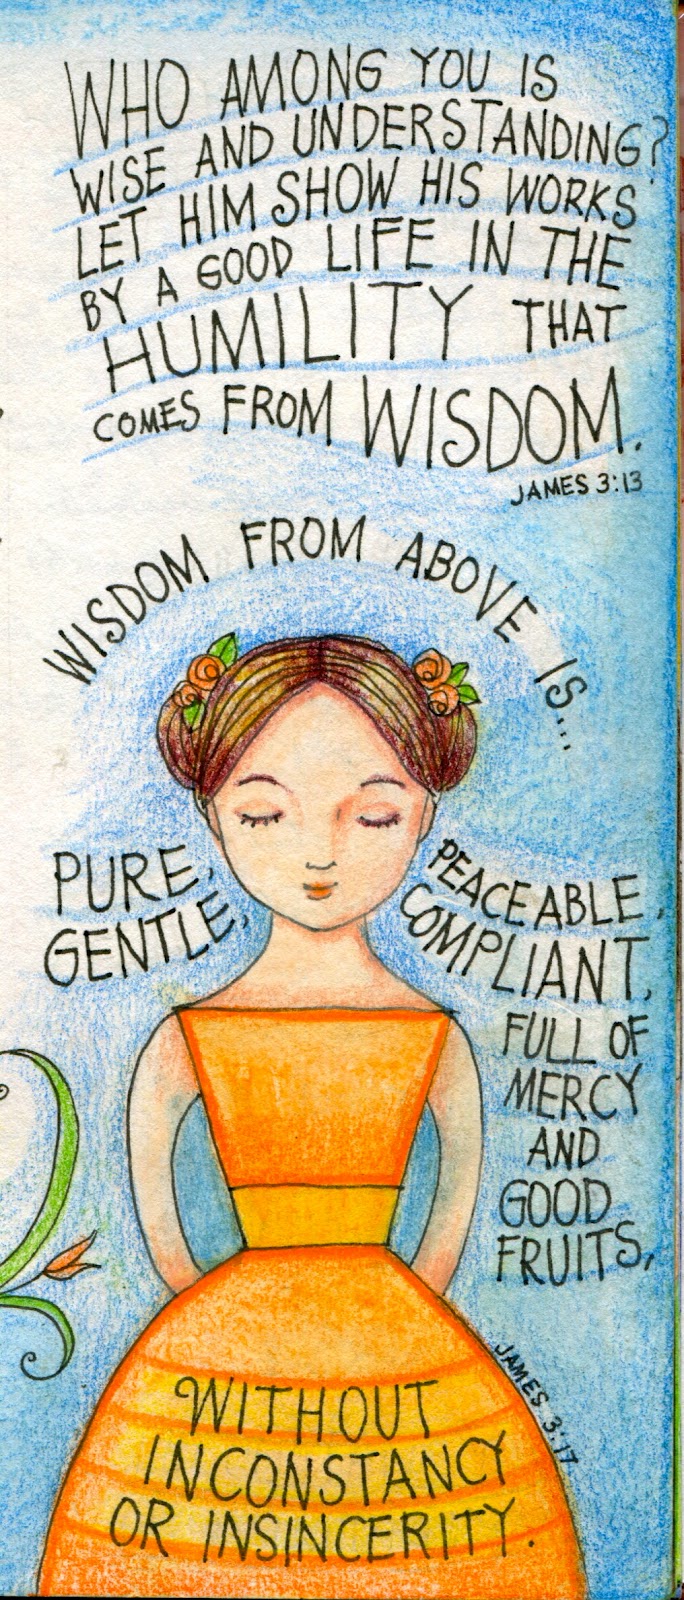 WHO AMONG YOU IS
WISE AND UNDERSTANDING?
LET HIM SHOW HIS WORKS
BY A GOOD LIFE IN THE
HUMILITY THAT
COMES FROM WISDOM.
JAMES 3:13
WISDOM FROM ABOVE IS...
PURE,
GENTLE,
PEACEABLE,
COMPLIANT,
FULL OF
MERCY
AND
GOOD
FRUITS,
WITHOUT
INCONSTANCY
OR INSINCERITY.
JAMES 3:17